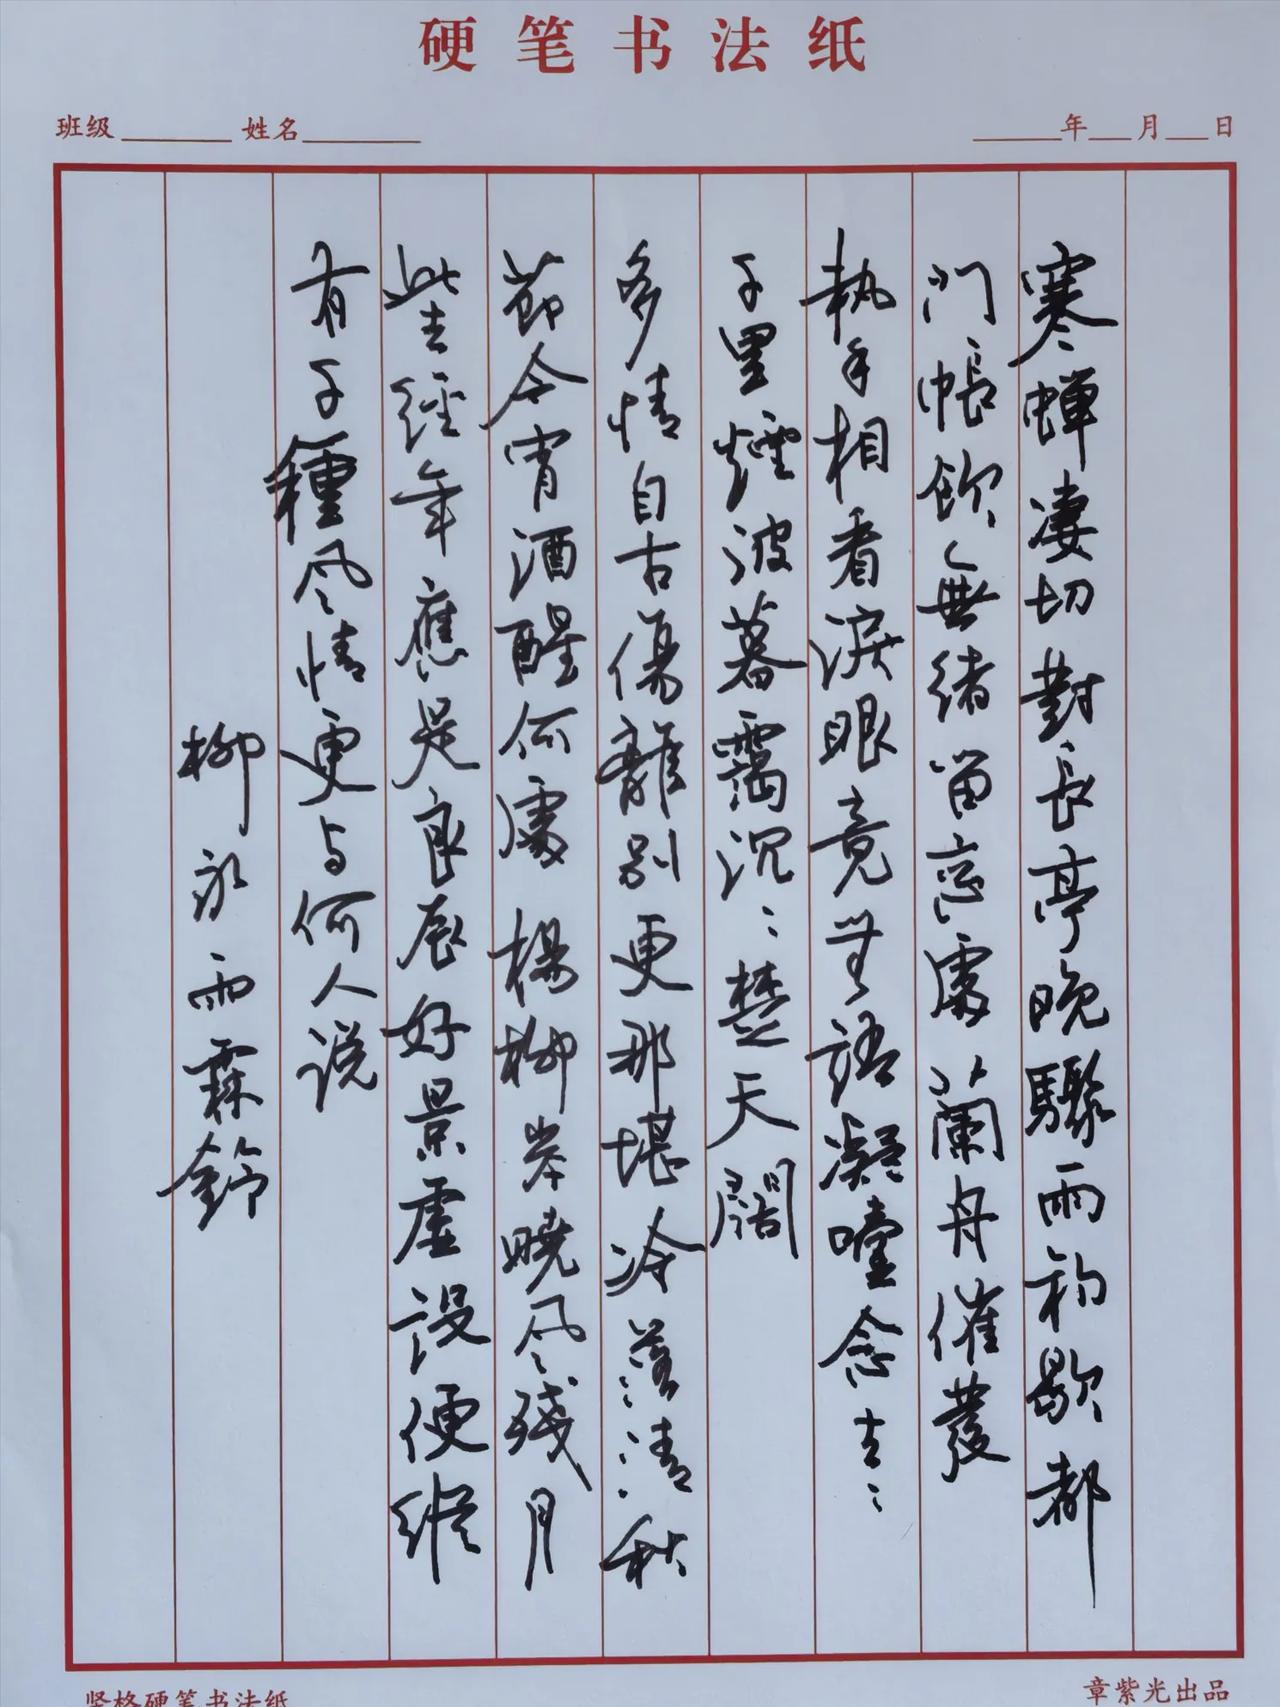 硬笔书法纸
班级 姓名 年 月 日
寒蟬凄切對長亭晚驟雨初歇都
門帳飲無緒留戀處蘭舟催發
執手相看淚眼竟無語凝噎念去〻
千里煙波暮靄沉〻楚天闊
多情自古傷離別更那堪冷落清秋
節今宵酒醒何處楊柳岸曉風殘月
此去經年應是良辰好景虛設便縱
有千種風情更与何人說
柳永雨霖鈴
竖格硬笔书法纸 章紫光出品